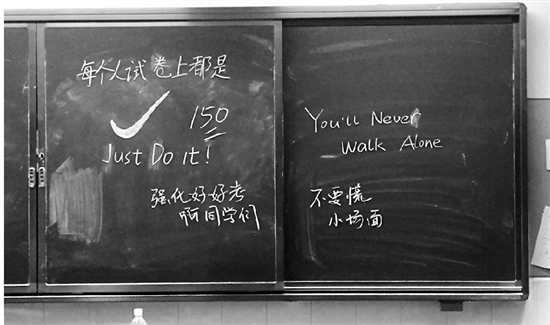 每个人试卷上都是
150
Just Do it!
强化好好考
啊同学们
You'll Never
Walk Alone
不要慌
小场面